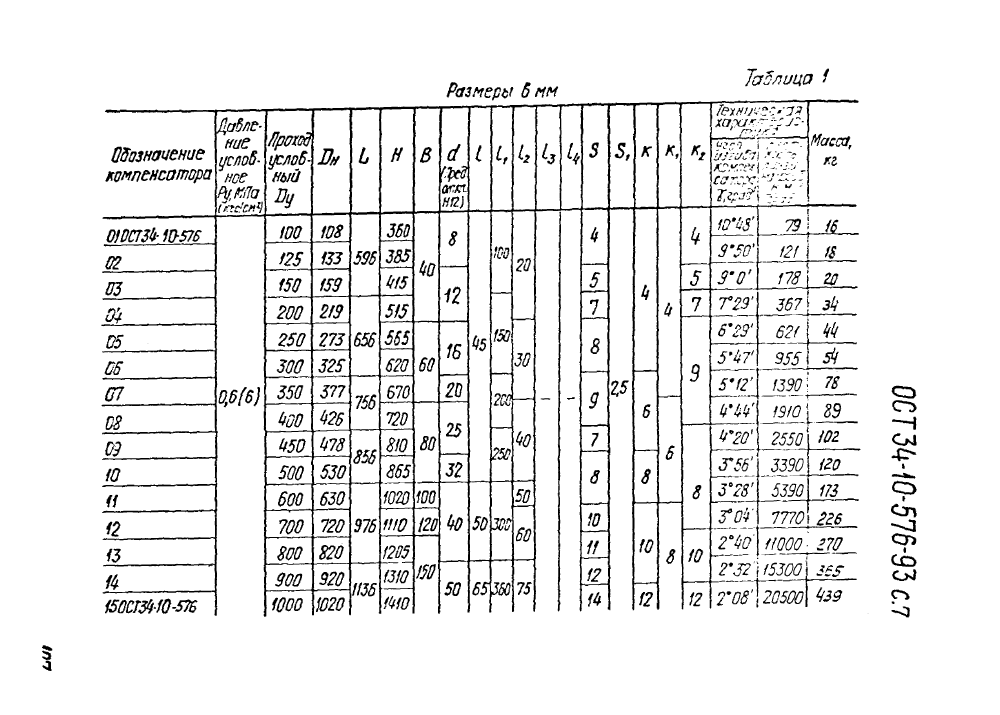 Таблица 1
Размеры в мм
Обозначение компенсатора | Давление условное Ру, МПа (кгс/см²) | Проход условный Dу | Dн | L | H | B | d (пред. откл. H12) | l | l₁ | l₂ | l₃ | l₄ | S | S₁ | К | К₁ | К₂ | Техническая характеристика | Масса, кг
01 ОСТ 34-10-576 | 0,6(6) | 100 | 108 | 596 | 360 | 40 | 8 | 45 | 100 | 20 | – | – | 4 | 2,5 | 4 | 4 | 4 | 10°48' | 79 | 16
02 | 125 | 133 | 385 | 9°50' | 121 | 18
03 | 150 | 159 | 415 | 12 | 5 | 5 | 9°0' | 178 | 20
04 | 200 | 219 | 656 | 515 | 150 | 7 | 7 | 7°29' | 367 | 34
05 | 250 | 273 | 565 | 60 | 16 | 30 | 8 | 9 | 6°29' | 621 | 44
06 | 300 | 325 | 620 | 5°47' | 955 | 54
07 | 350 | 377 | 756 | 670 | 20 | 200 | 9 | 6 | 5°12' | 1390 | 78
08 | 400 | 426 | 720 | 80 | 25 | 40 | 6 | 4°44' | 1910 | 89
09 | 450 | 478 | 856 | 810 | 250 | 7 | 8 | 4°20' | 2550 | 102
10 | 500 | 530 | 865 | 32 | 8 | 8 | 3°56' | 3390 | 120
11 | 600 | 630 | 976 | 1020 | 100 | 40 | 50 | 300 | 50 | 3°28' | 5390 | 173
12 | 700 | 720 | 1110 | 120 | 60 | 10 | 10 | 8 | 3°04' | 7770 | 226
13 | 800 | 820 | 1205 | 150 | 11 | 10 | 2°40' | 11000 | 270
14 | 900 | 920 | 1136 | 1310 | 50 | 65 | 360 | 75 | 12 | 2°32' | 15300 | 365
15 ОСТ 34-10-576 | 1000 | 1020 | 1410 | 14 | 12 | 12 | 2°08' | 20500 | 439
ОСТ 34-10-576-93 С.7